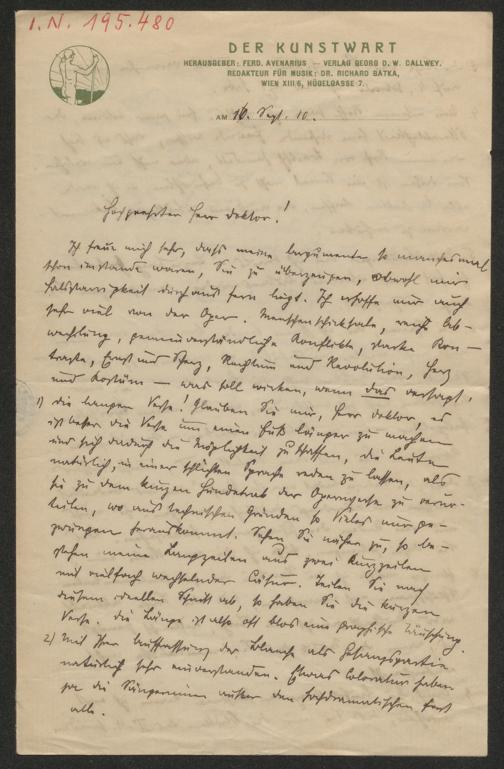 I.N. 195.480
DER KUNSTWART
HERAUSGEBER: FERD. AVENARIUS — VERLAG GEORG D. W. CALLWEY.
REDAKTEUR FÜR MUSIK: DR. RICHARD BATKA,
WIEN XIII/6, HÜGELGASSE 7.
AM 16. Sept. 10.
Hochgeehrter Herr Doktor!
Ich freue mich sehr, dass meine Argumente so manchesmal
schon imstande waren, Sie zu überzeugen, obwohl mir
Halsstarrigkeit durchaus fern liegt. Ich erhoffe mir auch
sehr viel von der Oper. Menschenschicksale, reiche Ab-
wechslung, gemeinverständliche Konflikte, starke Kon-
traste, Ernst und Scherz, und Revolution, Herz
und Kostüm — was soll wirken, wenn das versagt.
1) Die langen Verse! Glauben Sie mir, Herr Doktor, es
ist besser die Verse um einen Fuß länger zu machen
und sich dadurch die Möglichkeit zu schaffen, die Leute
natürlich, in einer schlichten Sprache reden zu lassen, als
sie zu dem kurzen Hundetrab der Opernverse zu verur-
teilen, wo aus technischen Gründen so Vieles nur ge-
zwungen herauskommt. Sehen Sie näher zu, so be-
stehen meine Langzeilen aus zwei Kurzzeilen
mit vielfach wechselnder Cäsur. Teilen Sie nach
diesem ideellen Schnitt ab, so haben Sie die kurzen
Verse. Die Länge ist also oft blos eine graphische Täuschung.
2) Mit Ihrer Auffassung der Blanche als Gesangspartie
natürlich sehr einverstanden. Etwas Coloratur haben
ja die Sängerinnen außer den hochdramatischen fast
alle.